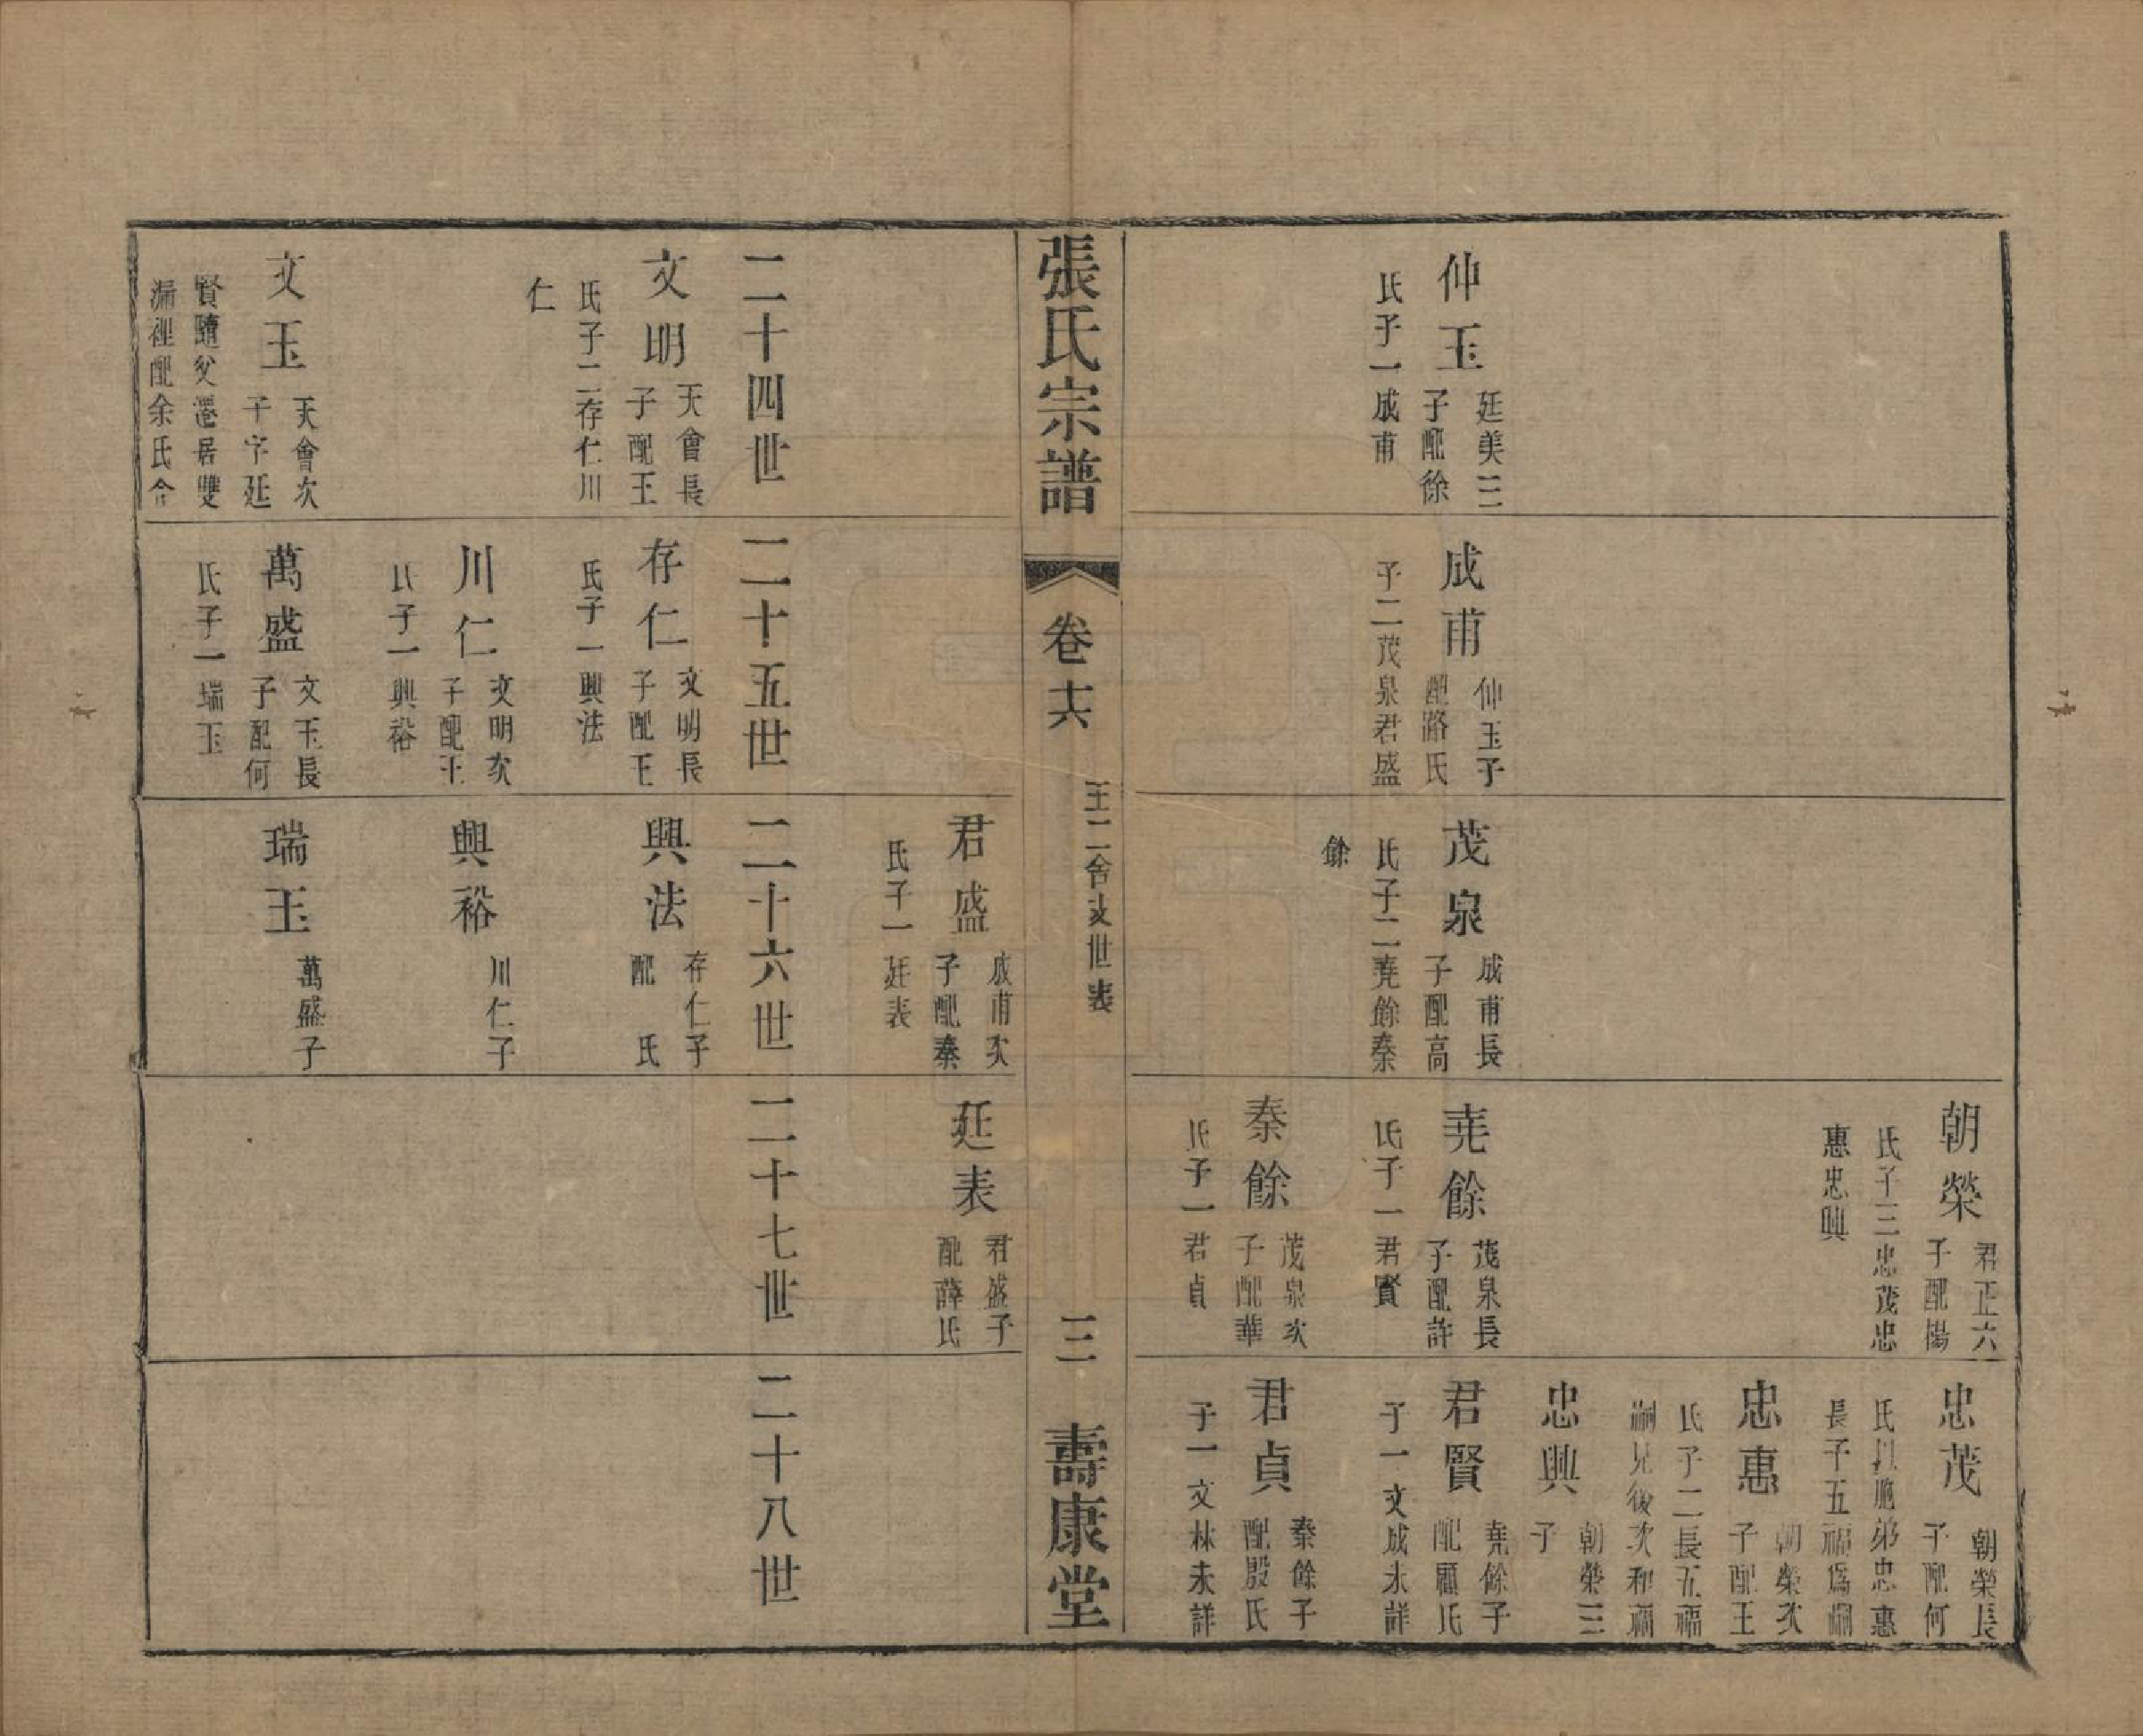 仲玉 廷美三子配徐氏子一成甫
成甫 仲玉子配路氏子二茂泉君盛
茂泉 成甫長子配高氏子二堯餘秦餘
朝榮 君正六子配楊氏子三忠茂忠惠忠興
堯餘 茂泉長子配許氏子一君賢
秦餘 茂泉次子配華氏子一君貞
忠茂 朝榮長子配何氏以胞弟忠惠長子五福爲嗣
忠惠 朝榮次子配王氏子二長五福嗣兄後次和福
忠興 朝榮三子
君賢 堯餘子配顧氏子一文成未詳
君貞 秦餘子配殷氏子一文林未詳
張氏宗譜
卷十六
王二舍支世表
三
壽康堂
君盛 成甫次子配秦氏子一廷表
廷表 君盛子配薛氏
二十四世
二十五世
二十六世
二十七世
二十八世
文明 天會長子配王氏子二存仁川仁
文玉 天會次子字廷賢隨父遷居雙漏裡配余氏合
存仁 文明長子配王氏子一興法
川仁 文明次子配王氏子一興裕
萬盛 文玉長子配何氏子一瑞玉
興法 存仁子配 氏
興裕 川仁子
瑞玉 萬盛子